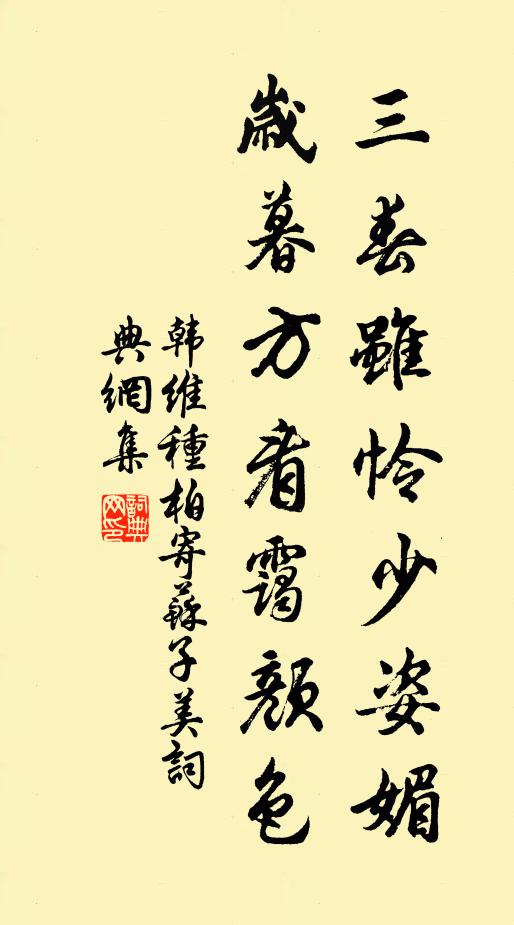 三春雖怜少姿媚
歲暮方看霭顏色
韩維種柏寄蘇子美詞
典網集
詞典网印